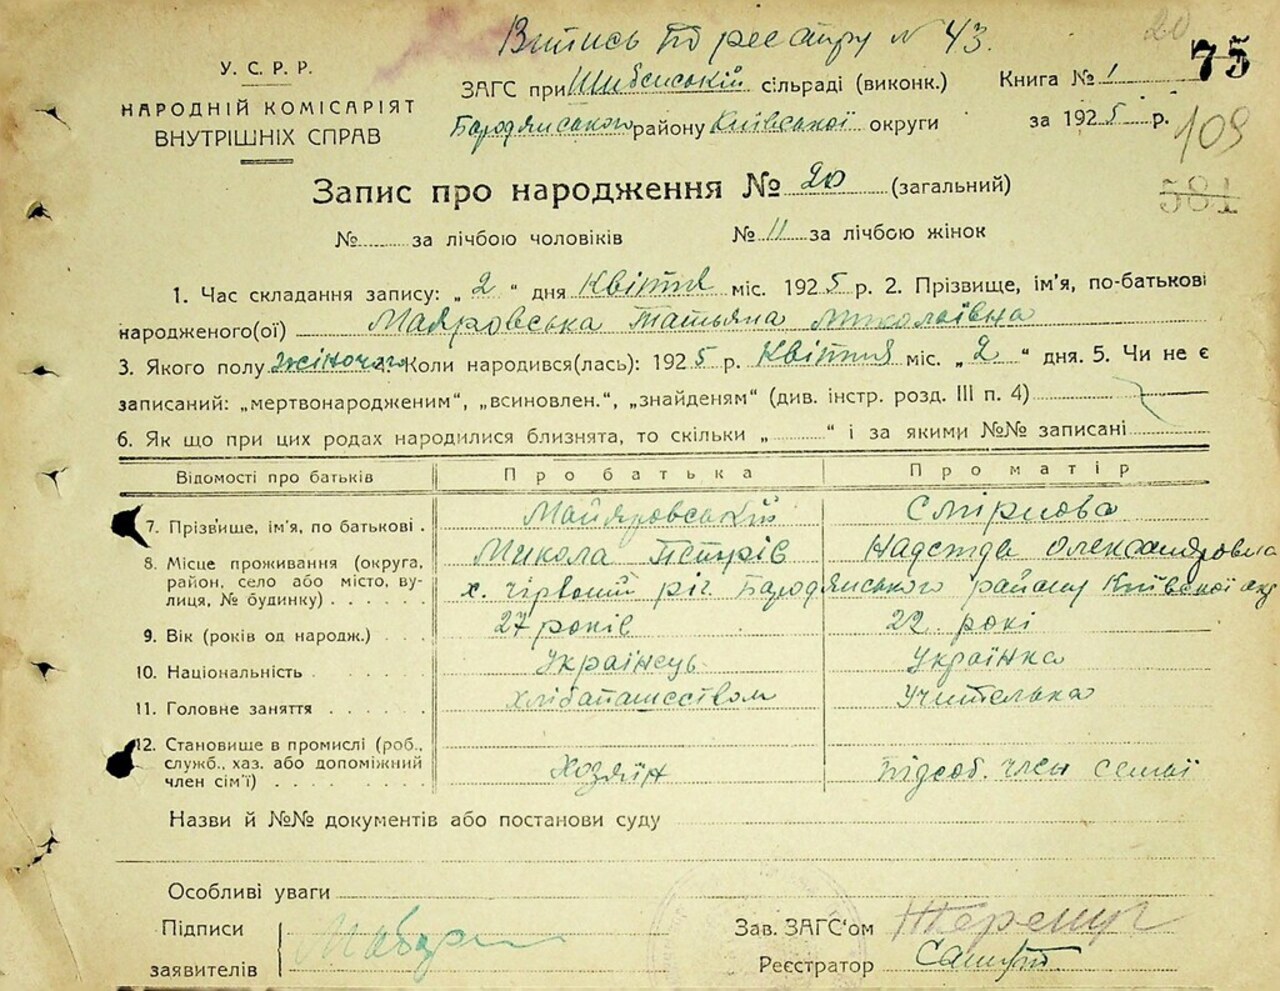 Випись по реєстру № 43.
20
75
У. С. Р. Р.
НАРОДНІЙ КОМІСАРІЯТ
ВНУТРІШНІХ СПРАВ
ЗАГС при Шибенській сільраді (виконк.)
Бородянського району Київської округи
Книга № 1
за 1925 р.
109
581
Запис про народження № 20 (загальний)
№ за лічбою чоловіків № 11 за лічбою жінок
1. Час складання запису: „2“ дня Квітня міс. 1925 р. 2. Прізвище, ім'я, по-батькові
народженого(ої) Маяровська Татьяна Миколаївна
3. Якого полу жіночого Коли народився(лась): 1925 р. Квітня міс. „2“ дня. 5. Чи не є
записаний: „мертвонародженим“, „всиновлен.“, „знайденям“ (див. інстр. розд. III п. 4)
6. Як що при цих родах народилися близнята, то скільки „ “ і за якими №№ записані
Відомості про батьків Про батька Про матір
7. Прізвище, ім'я, по батькові . Майяровський Смірнова
Микола Петрів Надежда Олександровна
8. Місце проживання (округа,
район, село або місто, ву-
лиця, № будинку) . . . . . х. Чірвоний ріг. Бародянського району Київської окр
9. Вік (років од народж.) . . . 27 років 22 рокі
10. Національність . . . . . . Українець Українка
11. Головне заняття . . . . . . хлібапашеством Учителька
12. Становище в промислі (роб.,
служб., хаз. або допоміжний
член сім'ї) . . . . . . . . Хозяїн підсоб. член семьї
Назви й №№ документів або постанови суду
Особливі уваги
Підписи
заявителів
Зав. ЗАГС'ом
Реєстратор